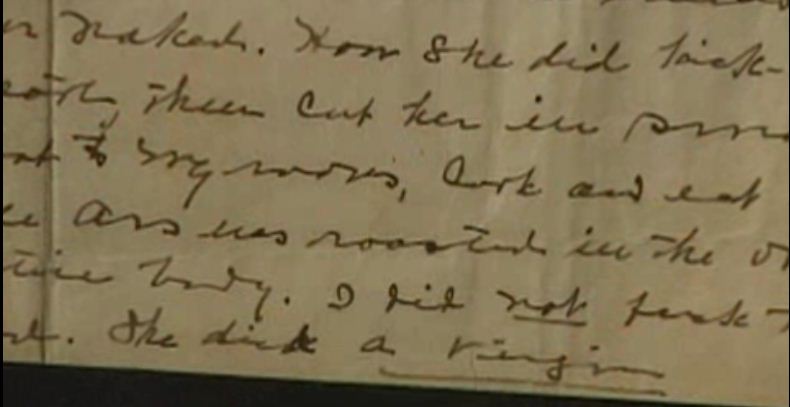 naked. How she did kick-
then cut her in
to my rooms, Cook and eat
ass was roasted in the
body. I did not fuck
She died a virgin